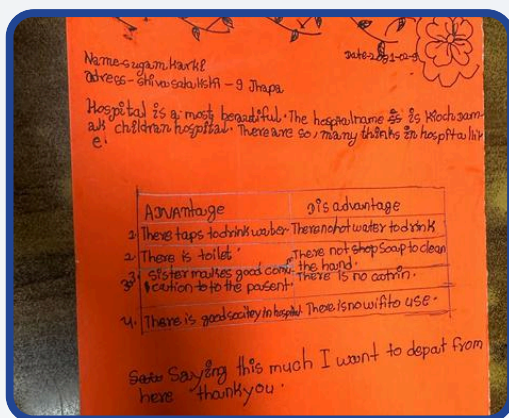 Name-sugam karki
Date-2021-02-9
adress-shivasatakshi-9 Jhapa
Hospital is a most beautiful. The hospital name is is kioch sam-
ak children hospital. There are so, many thinks in hospital lik
e.
ADVAntage Disadvantage
1. There taps to drink water There no hot water to drink
2. There is toilet. There not shop soap to clean
the hand.
3. sister makes good comu
ication to to the pasent. There is no catrin.
4. There is good socitey in hospital There is no wifi to use.
Saying this much I want to depat from
here thankyou.